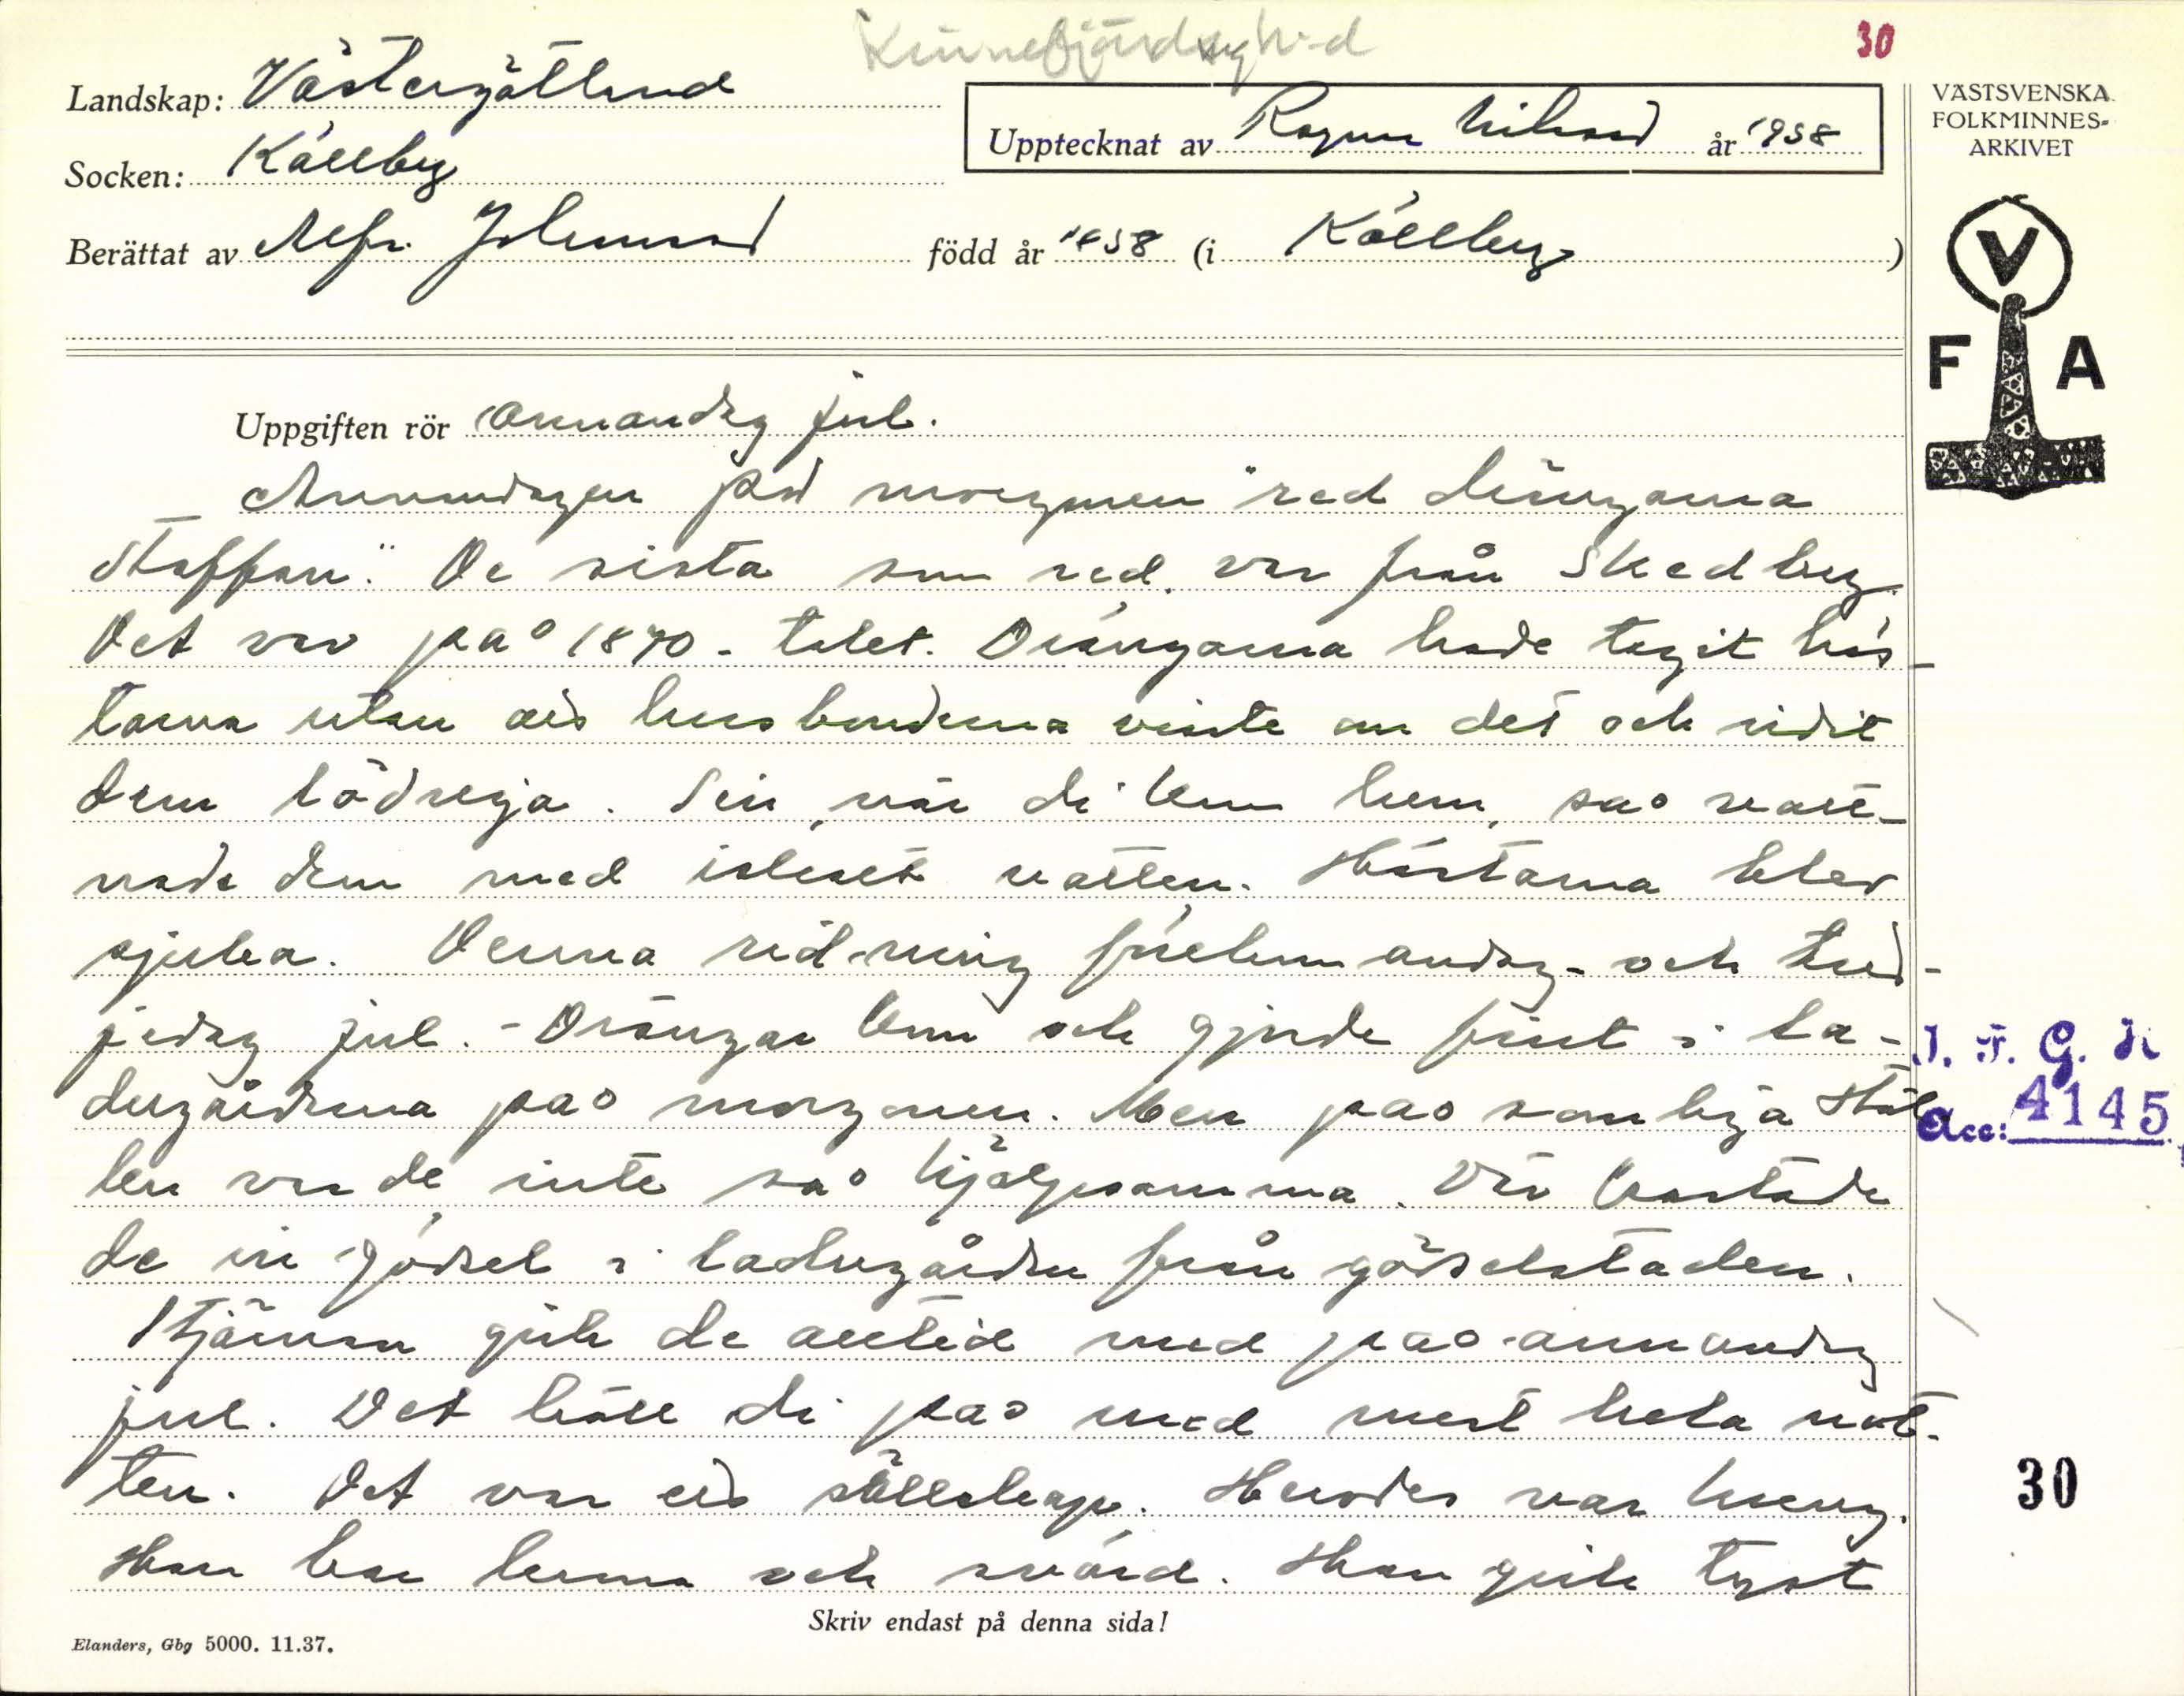 Kinnefjärdings h-d
30
Landskap: Västergötland
Socken: Källby
Upptecknat av Ragnar Nilsson år 1938
Berättat av Alfr. Johansson född år 1858 (i Källby )
VÄSTSVENSKA
FOLKMINNES-
ARKIVET
V
F A
Uppgiften rör Annandag jul.
Annandagen på morgonen "red drängarna
Staffan". De sista som red, var från Skedberg.
Det var på 1870-talet. Drängarna hade tagit häs-
tarna utan att husbönderna visste om det och ridit
dem löddriga. Sen, när di kom hem, så vatt-
nade dem med iskallt vatten. Hästarna blev
sjuka. Denna ridning förekom andag- och tred-
jedag jul. - Drängar kom och gjorde fint i la-
dugårdarna på morgonen. Men på somliga stäl-
len var de inte så hjälpsamma. Där kastade
de in gödsel i ladugården från gödselstaden.
Stjärnan gick de alltid med på annandag
jul. Det höll di på med mest hela nat-
ten. Det var ett sällskap. Herodes var kung.
Han bar krona och svärd. Han gick tyst
I. F. G. :s
Acc: 4145
30
Skriv endast på denna sida!
Elanders, Gbg 5000. 11.37.